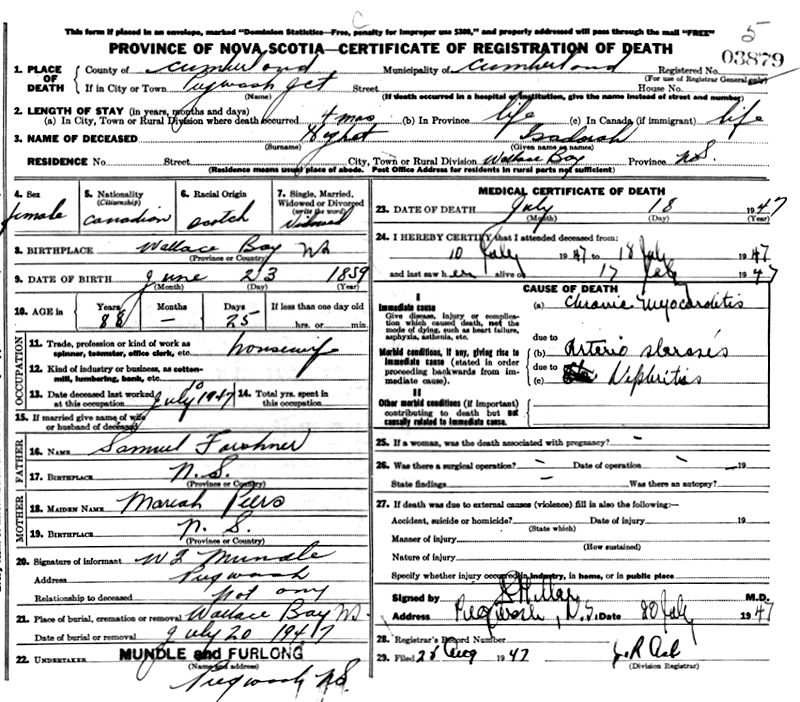 C
This form if placed in an envelope, marked "Dominion Statistics—Free, penalty for improper use $300," and properly addressed will pass through the mail "FREE"
5
PROVINCE OF NOVA SCOTIA—CERTIFICATE OF REGISTRATION OF DEATH
03879
1. PLACE OF DEATH County of Cumberland Municipality of Cumberland Registered No.
(For use of Registrar General only)
If in City or Town Pugwash Jct Street House No.
(Name) (If death occurred in a hospital or institution, give the name instead of street and number)
2. LENGTH OF STAY (in years, months and days)
(a) In City, Town or Rural Division where death occurred 4 mos (b) In Province life (c) In Canada (if immigrant) life
3. NAME OF DECEASED
(Surname) (Given name or names)
RESIDENCE No. Street City, Town or Rural Division Wallace Bay Province N.S.
(Residence means usual place of abode. Post Office Address for residents in rural parts not sufficient)
4. Sex female
5. Nationality (Citizenship) Canadian
6. Racial Origin Scotch
7. Single, Married, Widowed or Divorced (write the word) Widowed
8. BIRTHPLACE Wallace Bay NS
(Province or Country)
9. DATE OF BIRTH June 23 1859
(Month) (Day) (Year)
10. AGE in Years 88 Months — Days 25 If less than one day old hrs. or min.
OCCUPATION
11. Trade, profession or kind of work as spinner, teamster, office clerk, etc. housewife
12. Kind of industry or business, as cotton-mill, lumbering, bank, etc.
13. Date deceased last worked at this occupation July 10 1947
14. Total yrs. spent in this occupation
15. If married give name of wife or husband of deceased
FATHER
16. NAME Samuel
17. BIRTHPLACE N.S.
(Province or Country)
MOTHER
18. MAIDEN NAME Mariah Peers
19. BIRTHPLACE N. S.
(Province or Country)
20. Signature of informant Mundle
Address Pugwash
Relationship to deceased Not any
21. Place of burial, cremation or removal Wallace Bay NS.
Date of burial or removal July 20 1947
22. UNDERTAKER MUNDLE and FURLONG
(Name and address)
Pugwash N.S.
MEDICAL CERTIFICATE OF DEATH
23. DATE OF DEATH July 18 1947
(Month) (Day) (Year)
24. I HEREBY CERTIFY that I attended deceased from:
10 July 1947 to 18 July 1947
and last saw her alive on 17 July 1947
CAUSE OF DEATH
I
Immediate cause
Give disease, injury or complication which caused death, not the mode of dying, such as heart failure, asphyxia, asthenia, etc.
(a) Chronic Myocarditis
due to
Morbid conditions, if any, giving rise to immediate cause (stated in order proceeding backwards from immediate cause).
(b) Arterio
due to
(c) Nephritis
II
Other morbid conditions (if important) contributing to death but not causally related to immediate cause.
25. If a woman, was the death associated with pregnancy? —
26. Was there a surgical operation? — Date of operation — 19
State findings — Was there an autopsy?
27. If death was due to external causes (violence) fill in also the following:—
Accident, suicide or homicide? Date of injury 19
(State which)
Manner of injury
(How sustained)
Nature of injury
Specify whether injury occurred in industry, in home, or in public place
Signed by M.D.
Address Pugwash, N.S. Date 20 July 1947
28. Registrar's Record Number
29. Filed Aug 1947
(Division Registrar)